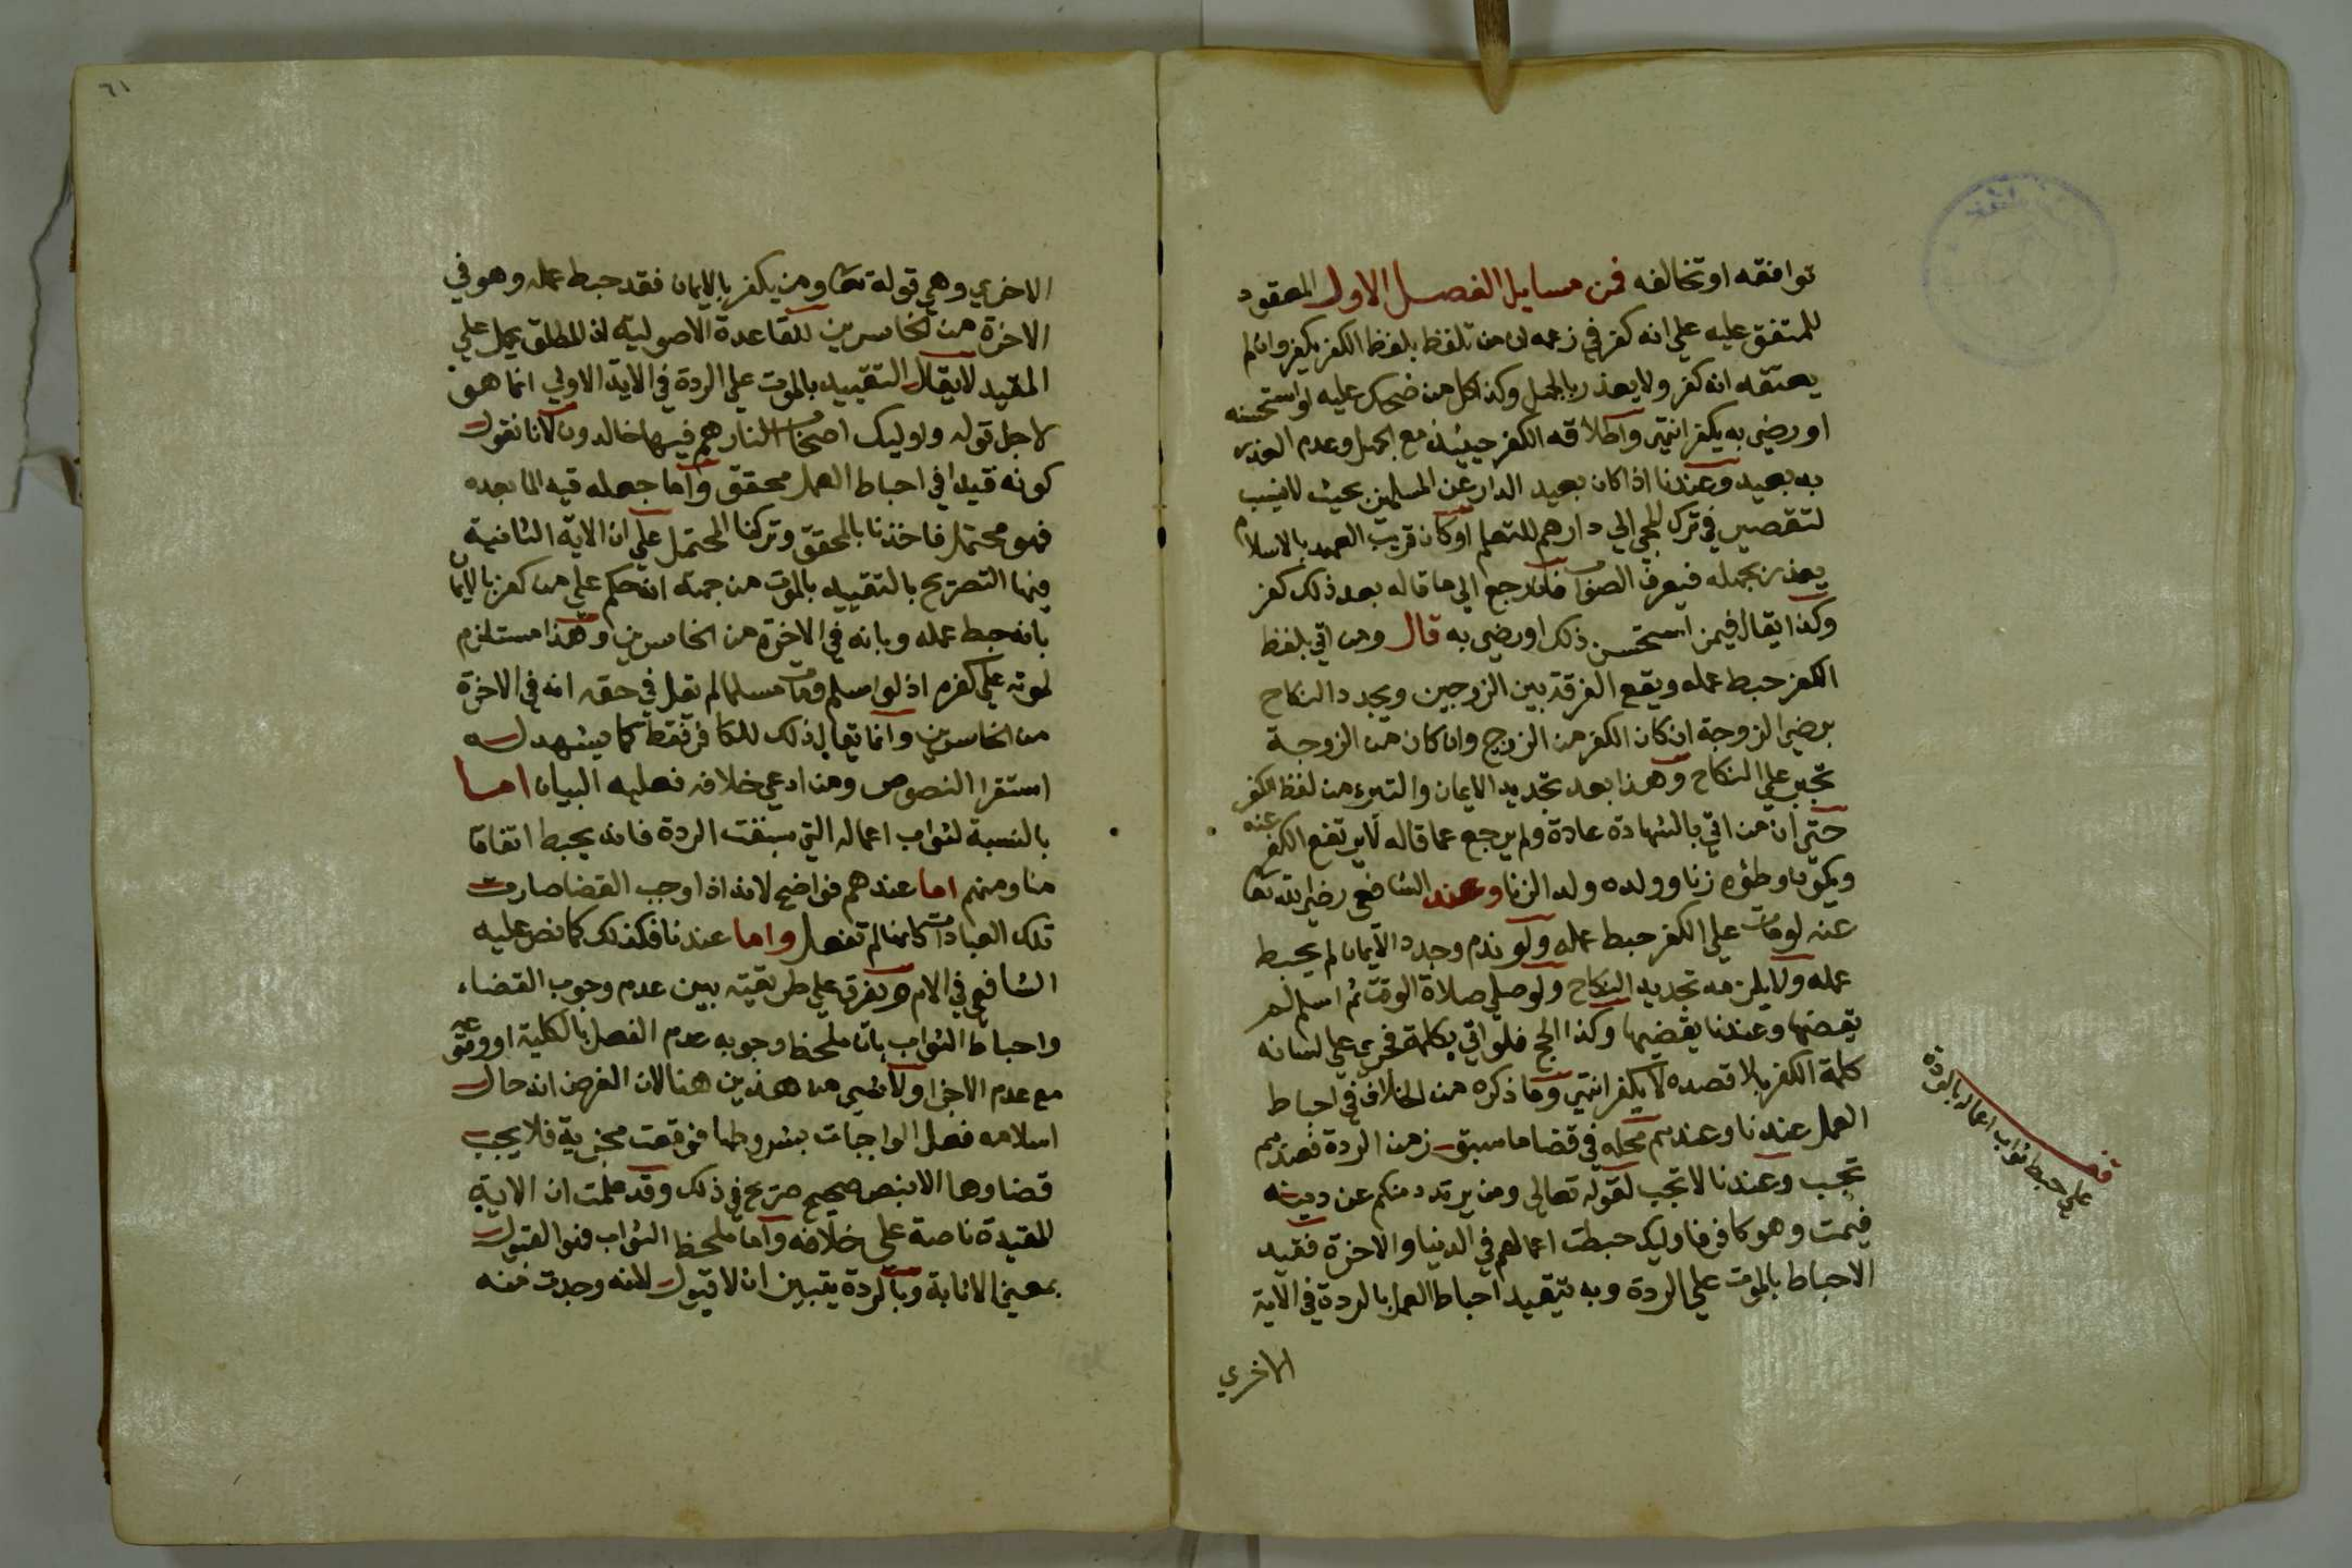 توافقه او تخالفه فمن مسايل الفصل الاول المعقود
للمتفق عليه علي انه كفر في زعمه ان من تلفظ بلفظ الكفر يكفر وان لم
يعتقد انه كفر ولا يعذر بالجهل وكذا كل من ضحك عليه او استحسنه
او رضي به يكفر انتهي واطلاقه الكفر حينيذ مع الجهل وعدم العذر
به بعيد وعندنا اذا كان بعيد الدار عن المسلمين بحيث لا ينسب
لتقصير في ترك المجي الي دارهم للتعلم او كان قريب العهد بالاسلام
يعذر بجهله فيعرف الصواب فان رجع الي ما قاله بعد ذلك كفر
وكذا يقال فيمن استحسن ذلك او رضي به قال ومن اتي بلفظ
الكفر حبط عمله ويقع الفرقة بين الزوجين ويجدد النكاح
برضي الزوجة ان كان الكفر من الزوج وان كان من الزوجة
تجبر علي النكاح وهذا بعد تجديد الايمان والتبرء من لفظ الكفر
حتي ان من اتي بالشهادة عادة ولم يرجع عما قاله لا يرتفع الكفر عنه
ويكون وطؤه زنا وولده ولد الزنا وعند الشافعي رضي الله تعا
عنه لو مات علي الكفر حبط عمله ولو ندم وجدد الايمان لم يحبط
عمله ولا يلزمه تجديد النكاح ولو صلي صلاة الوقت ثم اسلم لم
يقضها وعندنا يقضيها وكذا الحج فلو اتي بكلمة فجري علي لسانه
كلمة الكفر بلا قصده لا يكفر انتهي وما ذكره من الخلاف في احباط
العمل عندنا وعندهم محله في قضا ما سبق زمن الردة فعندهم
تجب وعندنا لا تجب لقوله تعالي ومن يرتدد منكم عن دينه
فيمت وهو كافر فاوليك حبطت اعمالهم في الدنيا والاخرة فقيد
الاحباط بالموت علي الردة وبه تتقيد احباط العمل بالردة في الاية
الاخري
علي حبط ثواب اعماله بالردة
٦١
الاخري وهي قوله تعا ومن يكفر بالايمان فقد حبط عمله وهو في
الاخرة من الخاسرين للقاعدة الاصولية ان المطلق يحمل علي
المقيد لا يقال التقييد بالموت علي الردة في الاية الاولي انما هو
لاجل قوله واوليك اصحاب النار هم فيها خالدون لانا نقول
كونه قيدا في احباط العمل محقق واما جعله قيد الما بعده
فهو محتمل فاخذنا بالمحقق وتركنا المحتمل علي ان الاية الثانية
فيها التصريح بالتقييد بالموت من جهة ان حكم علي من كفر بالايمان
بانه حبط عمله وبانه في الاخرة من الخاسرين وهذا مستلزم
لموته علي كفره اذ لو اسلم ومات مسلما لم تقل في حقه انه في الاخرة
من الخاسرين وانما يقال ذلك للكافر فقط كما يشهد له
استقرا النصوص ومن ادعي خلافه فعليه البيان اما
بالنسبة لثواب اعماله التي سبقت الردة فانه يحبط اتفاقا
منا ومنهم اما عندهم فواضح لانه اذا اوجب القضا صارت
تلك العبادات كانها لم تفعل واما عندنا فكذلك كما نص عليه
الشافعي في الام ويفرق علي طريقته بين عدم وجوب القضاء
واحباط الثواب بان ملحظ وجوبه عدم الفعل بالكلية او وقوعه
مع عدم الاجزا ولا شي من هذين هنا لان الفرض انه حال
اسلامه فعل الواجبات بشروطها فوقعت مجزية فلا يجب
قضاوها الا بنص صحيح صريح في ذلك وقد علمت ان الاية
المقيدة ناصة علي خلافه واما ملحظ الثواب فهو القبول
بمعني الاثابة وبالردة يتبين ان لا قبول لانه وجدت منه